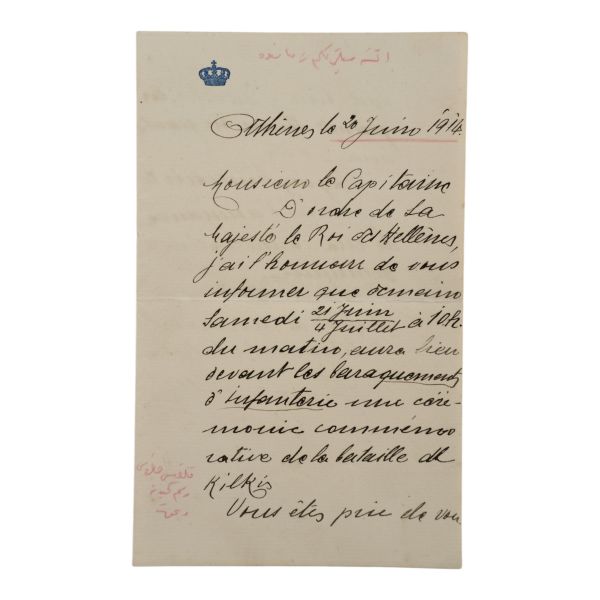 Athènes le 20 Juin 1914.
Monsieur le Capitaine
D'ordre de Sa
Majesté le Roi des Hellènes,
j'ai l'honneur de vous
informer que demain
Samedi 21 Juin / 4 Juillet à 10h.
du matin, aura lieu
devant les baraquements
d'infanterie une céré-
monie commémo
rative de la bataille de
Kilkis
Vous êtes prié de vou